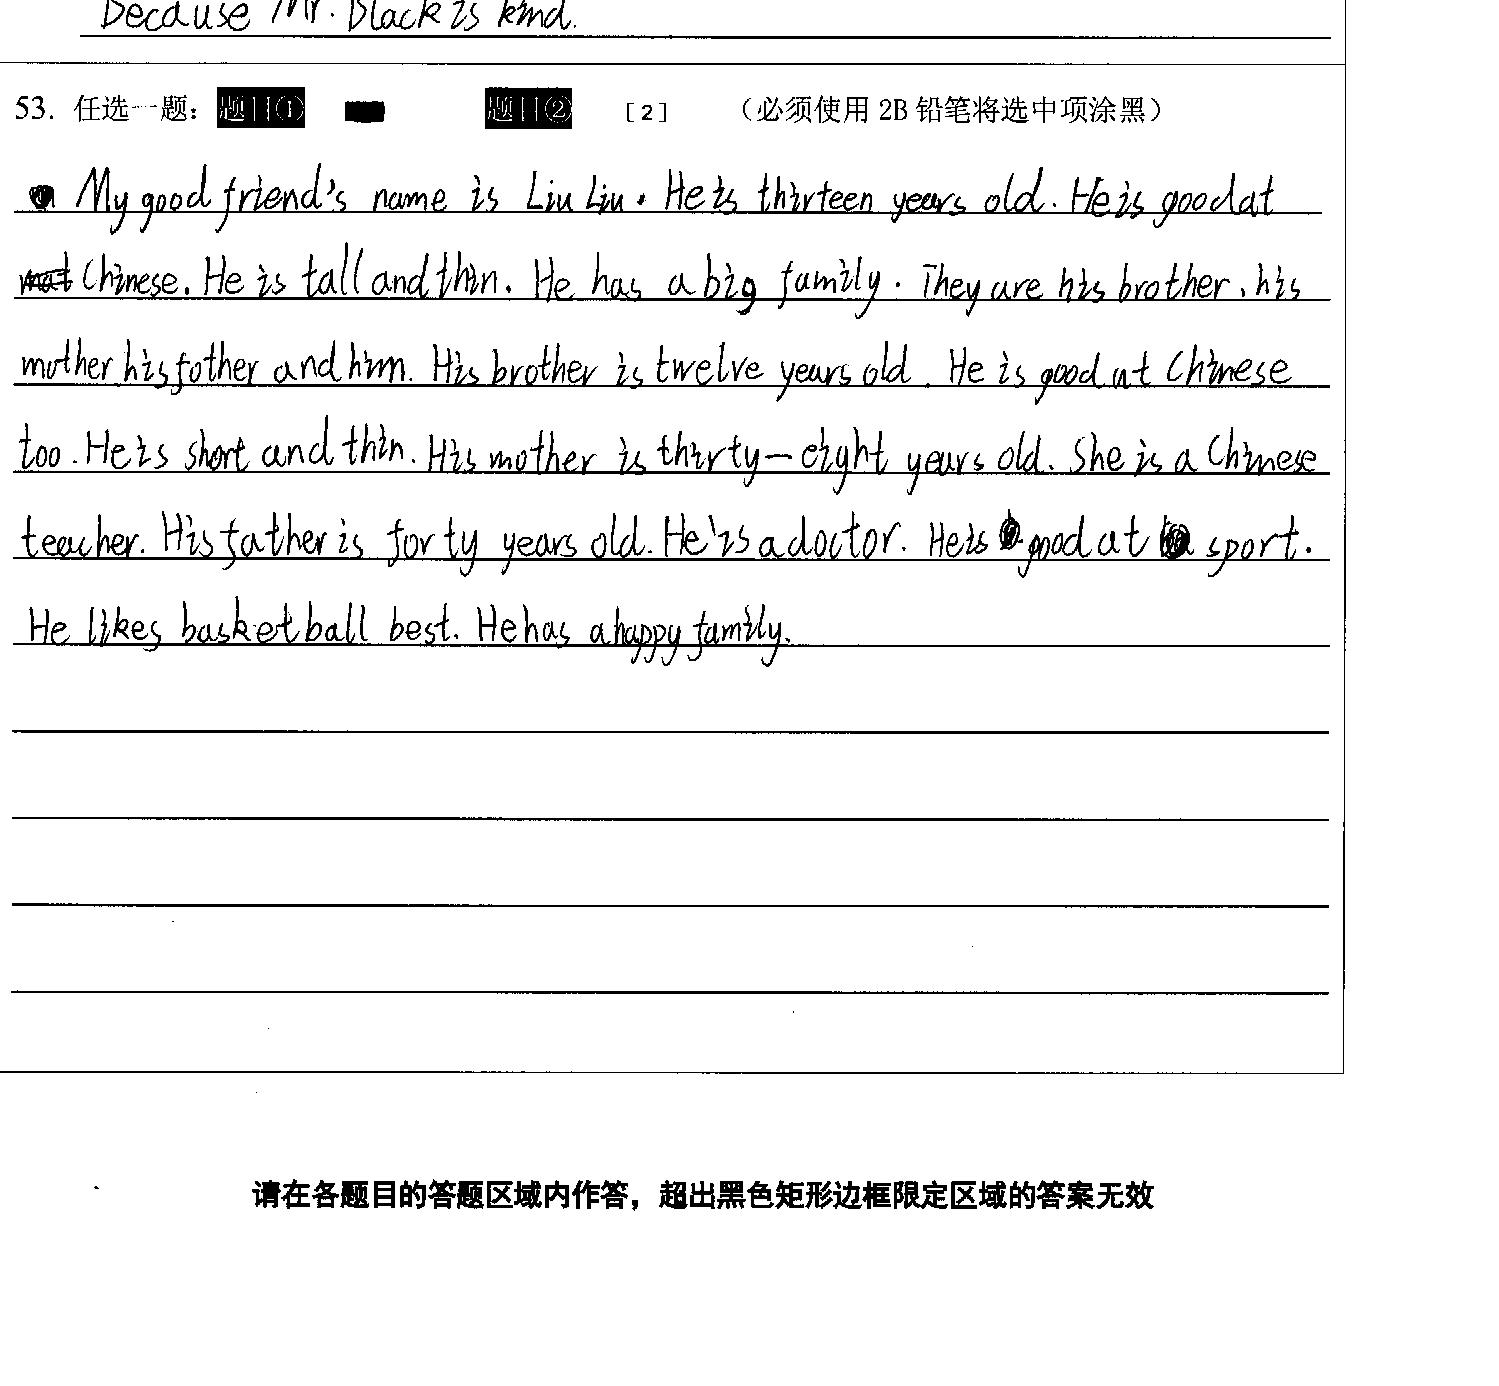 Because Mr. Black is kind.
53. 任选一题： 题目① 题目② [2] （必须使用 2B 铅笔将选中项涂黑）
My good friend's name is Liu Liu. He is thirteen years old. He is good at
Chinese. He is tall and thin. He has a big family. They are his brother, his
mother his fother and him. His brother is twelve years old. He is good at Chinese
too. He is short and thin. His mother is thirty-eight years old. She is a Chinese
teacher. His father is forty years old. He'is a doctor. He is good at sport.
He likes basketball best. He has a happy family.
请在各题目的答题区域内作答，超出黑色矩形边框限定区域的答案无效